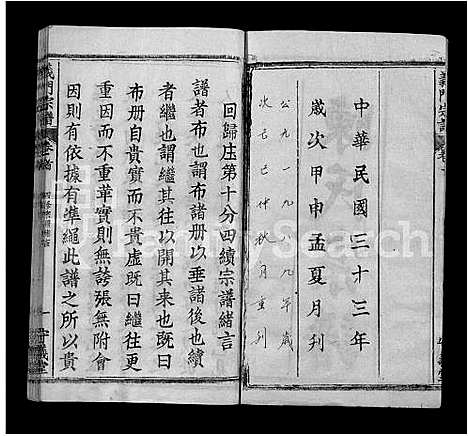 義門宗譜
中華民國三十三年
歲次甲申孟夏月刋
公元一九八九年歲
次己巳仲秋月重刋
回歸庄第十分四續宗譜緒言
譜者布也謂布諸册以垂諸後也續
者繼也謂繼其往以開其來也既曰
布册自貴實而不貴虛既曰繼往更
重因而不重華實則無誇張無附會
因則有依據有準繩此譜之所以貴
義門宗譜 卷首
一 守義堂
FamilySearch